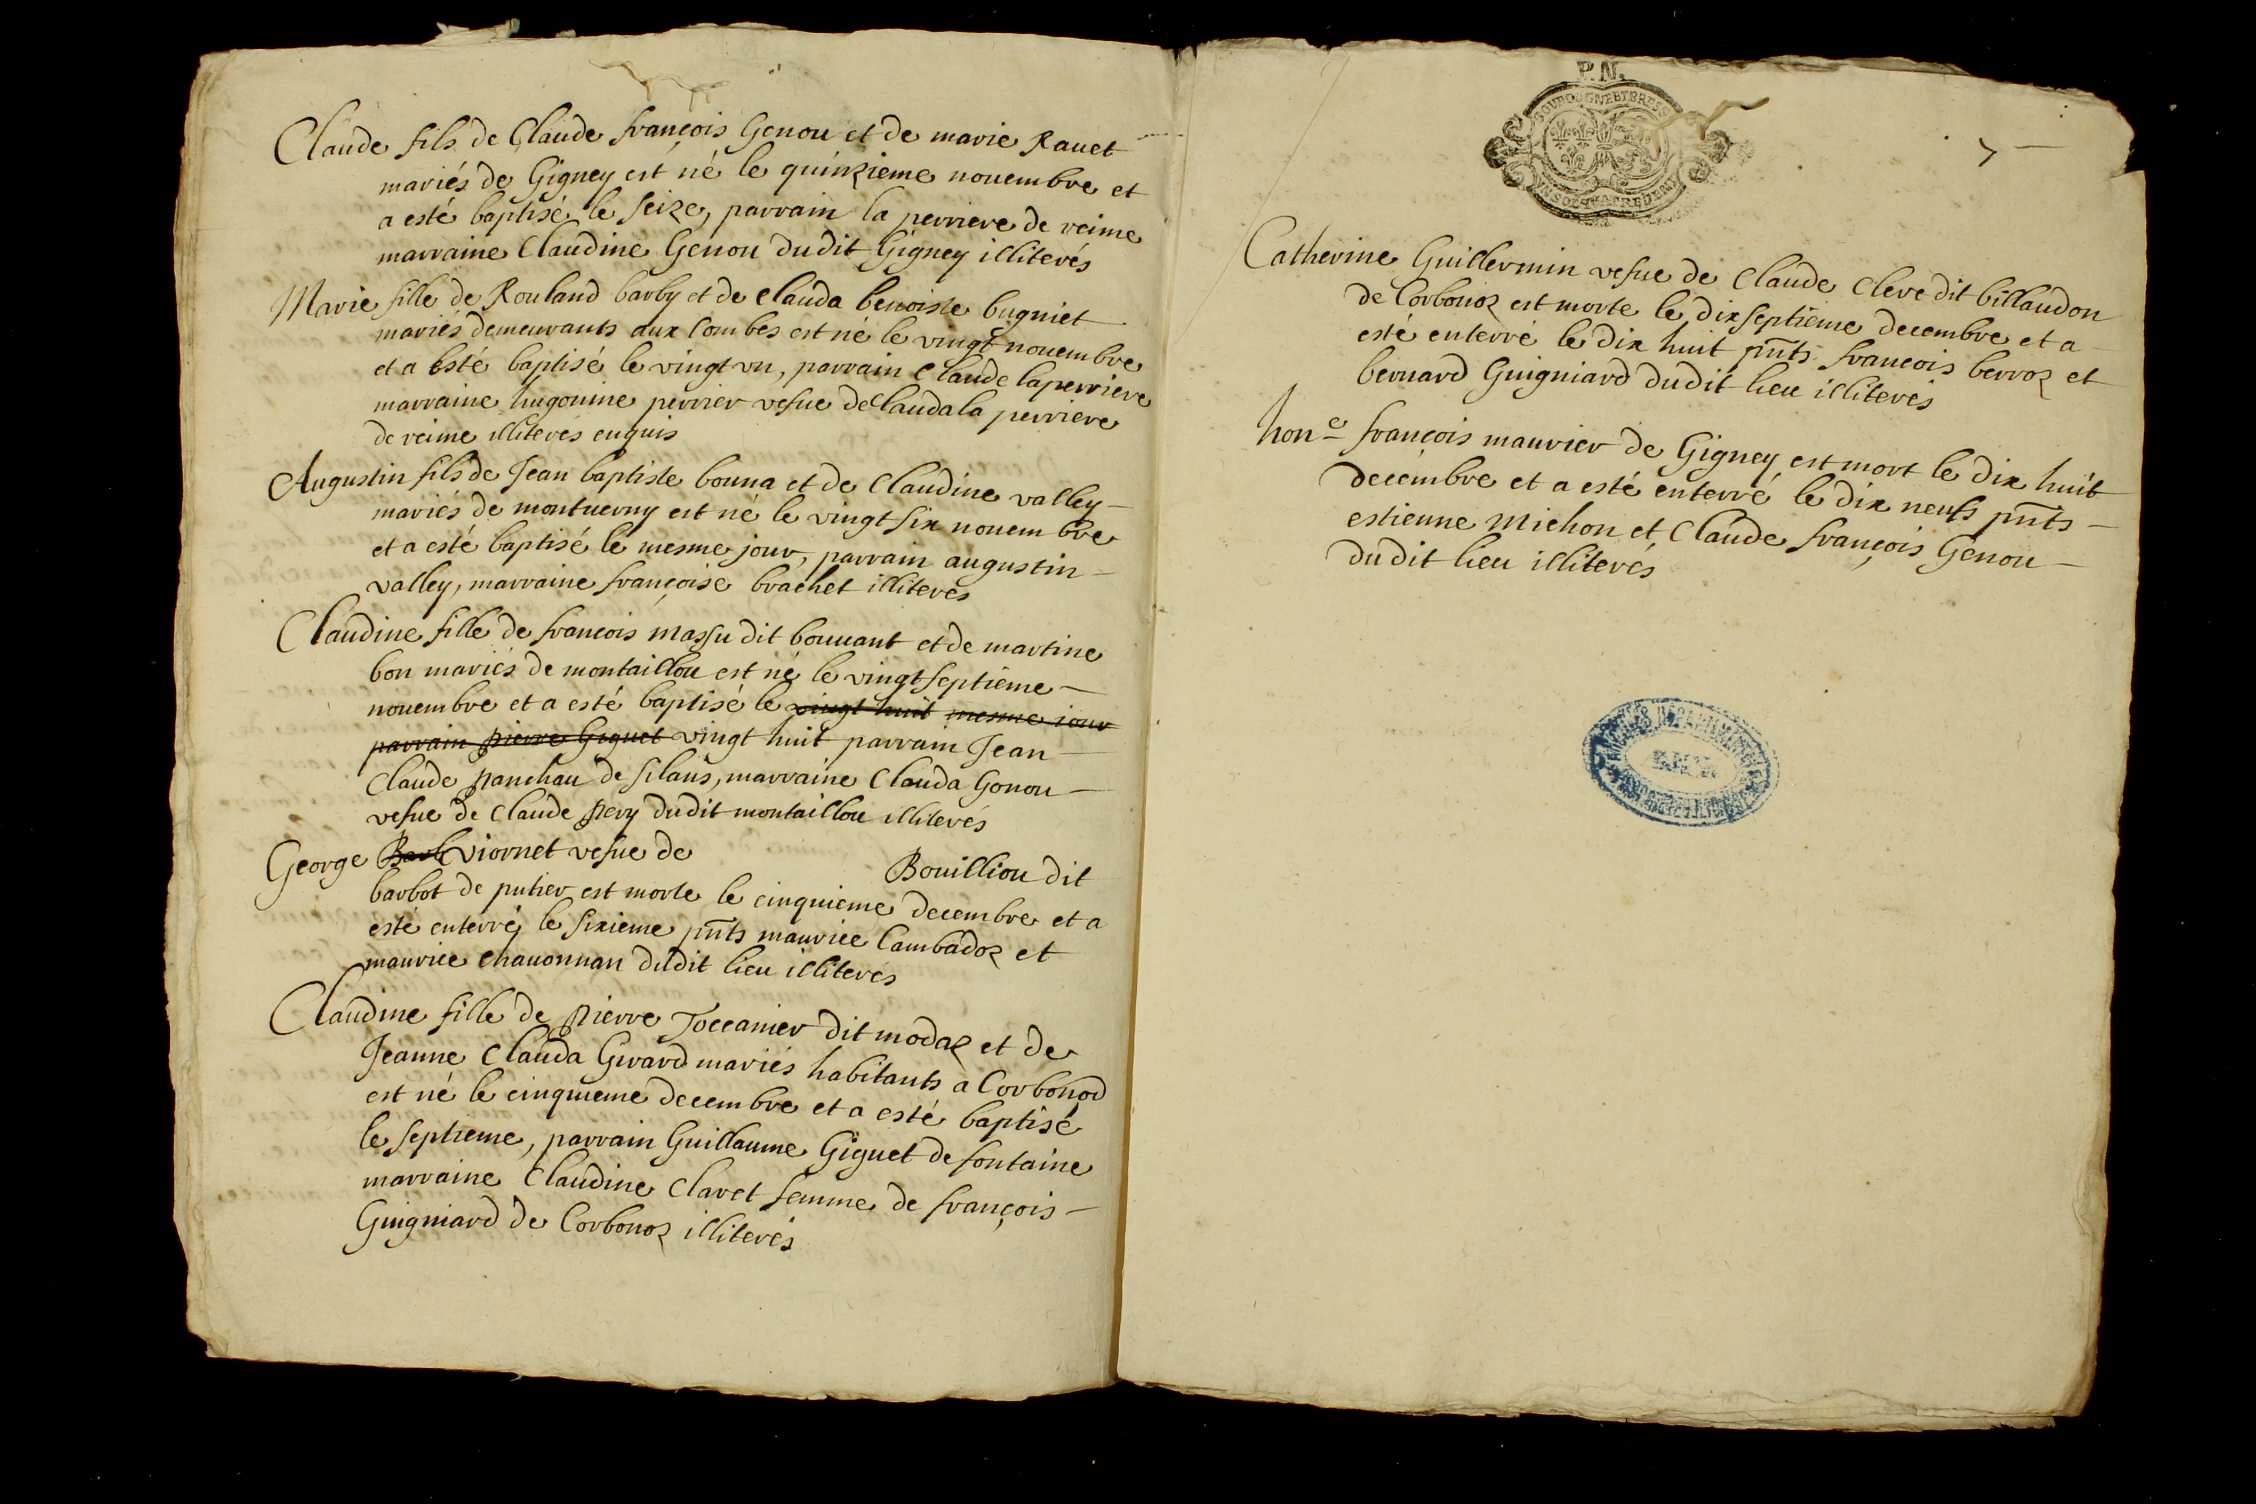 Claude fils de Claude françois Genou et de marie Rauet
mariés de Gigney est né le quinzieme nouembre et
a esté baptisé le seize, parrain la perriere de reime
marraine Claudine Genou dudit Gigney illiterés
Marie fille de Rouland barby et de Clauda benoiste bugniet
mariés demeurants aux Combes est né le vingt nouembre
et a esté baptisé le vingt vn, parrain Claude laperriere
marraine hugonine perrier vefue de Clauda la perriere
de reime illiterés enquis
Augustin fils de Jean baptiste bonna et de Claudine valley
mariés de montuerny est né le vingt six nouembre
et a esté baptisé le mesme jour, parrain augustin
valley, marraine françoise brachet illiterés
Claudine fille de françois massu dit bouuant et de martine
bon mariés de montaillou est né le vingt septieme
nouembre et a esté baptisé le vingt huit mesme jour
parrain pierre Giguet vingt huit parrain Jean
Claude panchau de silans, marraine Clauda Gonou
vefue de Claude pery dudit montaillou illiterés
George Barb viornet vefue de Bouilliou dit
barbot de putier est morte le cinquieme decembre et a
esté enterré le sixieme pnts maurice Cambadoz et
maurice chauonnan dudit lieu illiterés
Claudine fille de pierre Toccanier dit modaz et de
Jeanne Clauda Girard mariés habitants a Corbonod
est né le cinquieme decembre et a esté baptisé
le septieme, parrain Guillaume Giguet de fontaine
marraine Claudine Claret femme de françois
Guigniard de Corbonoz illiterés
P.N.
7
Catherine Guillermin vefue de Claude Clere dit billaudon
de Corbonoz est morte le dixseptieme decembre et a
esté enterré le dix huit pnts françois berroz et
bernard Guigniard dudit lieu illiterés
hone françois maurier de Gigney est mort le dix huit
decembre et a esté enterré le dix neufs pnts
estienne michon et Claude françois Genou
dudit lieu illiterés